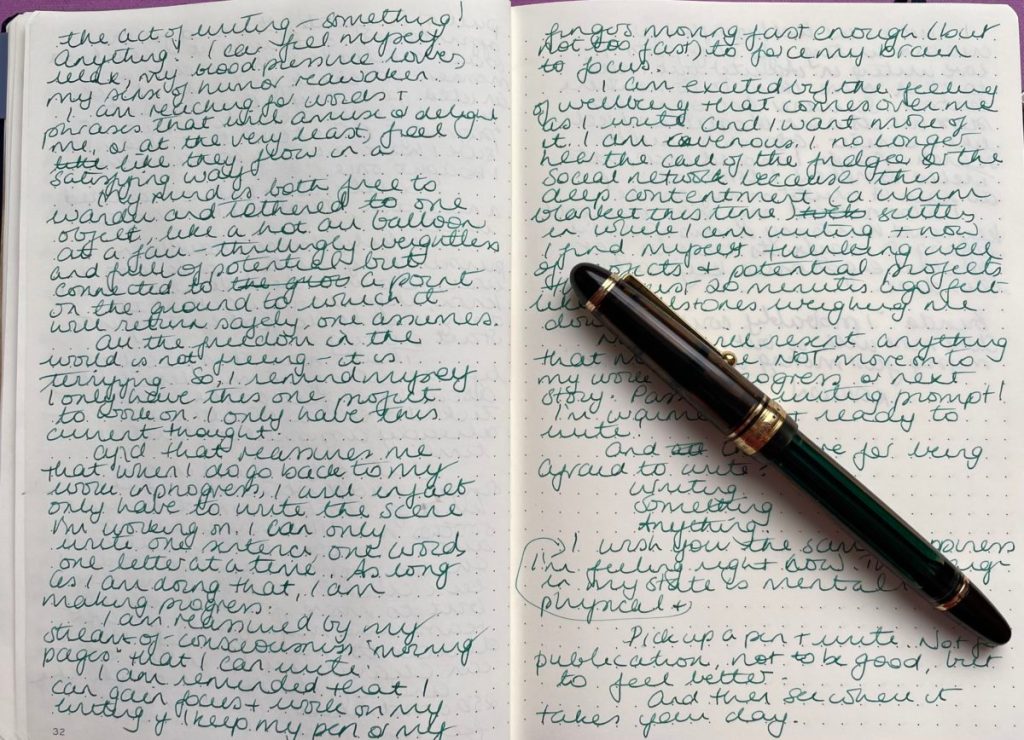 the act of writing – something!
Anything! I can feel myself
relax, my blood pressure lowers,
my sense of humor reawaken.
I am reaching for words +
phrases that will amuse & delight
me, or at the very least, feel
like they flow in a
satisfying way.
My mind is both free to
wander and tethered to one
object, like a hot air balloon
at a fair – thrillingly weightless
and full of potential but
connected to the grou a point
on the ground to which it
will return safely, one assumes.
All the freedom in the
world is not freeing – it is
terrifying. So, I remind myself
I only have this one project
to work on. I only have this
current thought.
And that reassures me
that when I do go back to my
work in progress, I will in fact
only have to write the scene
I'm working on. I can only
write one sentence, one word,
one letter at a time. As long
as I am doing that, I am
making progress.
I am reassured by my
stream-of-consciousness "morning
pages" that I can write.
I am reminded that I
can gain focus + work on my
writing if I keep my pen or my
32
fingers moving fast enough (but
not too fast) to force my brain
to focus.
I am excited by the feeling
of wellbeing that comes over me
as I write and I want more of
it. I am ravenous. I no longer
hear the call of the fridge or the
social network because this
deep contentment (a warm
blanket this time) settles
in while I am writing + now
I find myself thinking well
of projects + potential projects
that just 20 minutes ago felt
like millstones weighing me
down.
resent anything
that not move on to
my work progress or next
story. writing prompt!
I'm warmed ready to
write.
And for being
afraid to write:
Writing
Something
Anything
I wish you the same happiness
I'm feeling right now.
in my state is mental
physical +
Pick up a pen + write. Not for
publication, not to be good, but
to feel better.
And then see where it
takes your day.